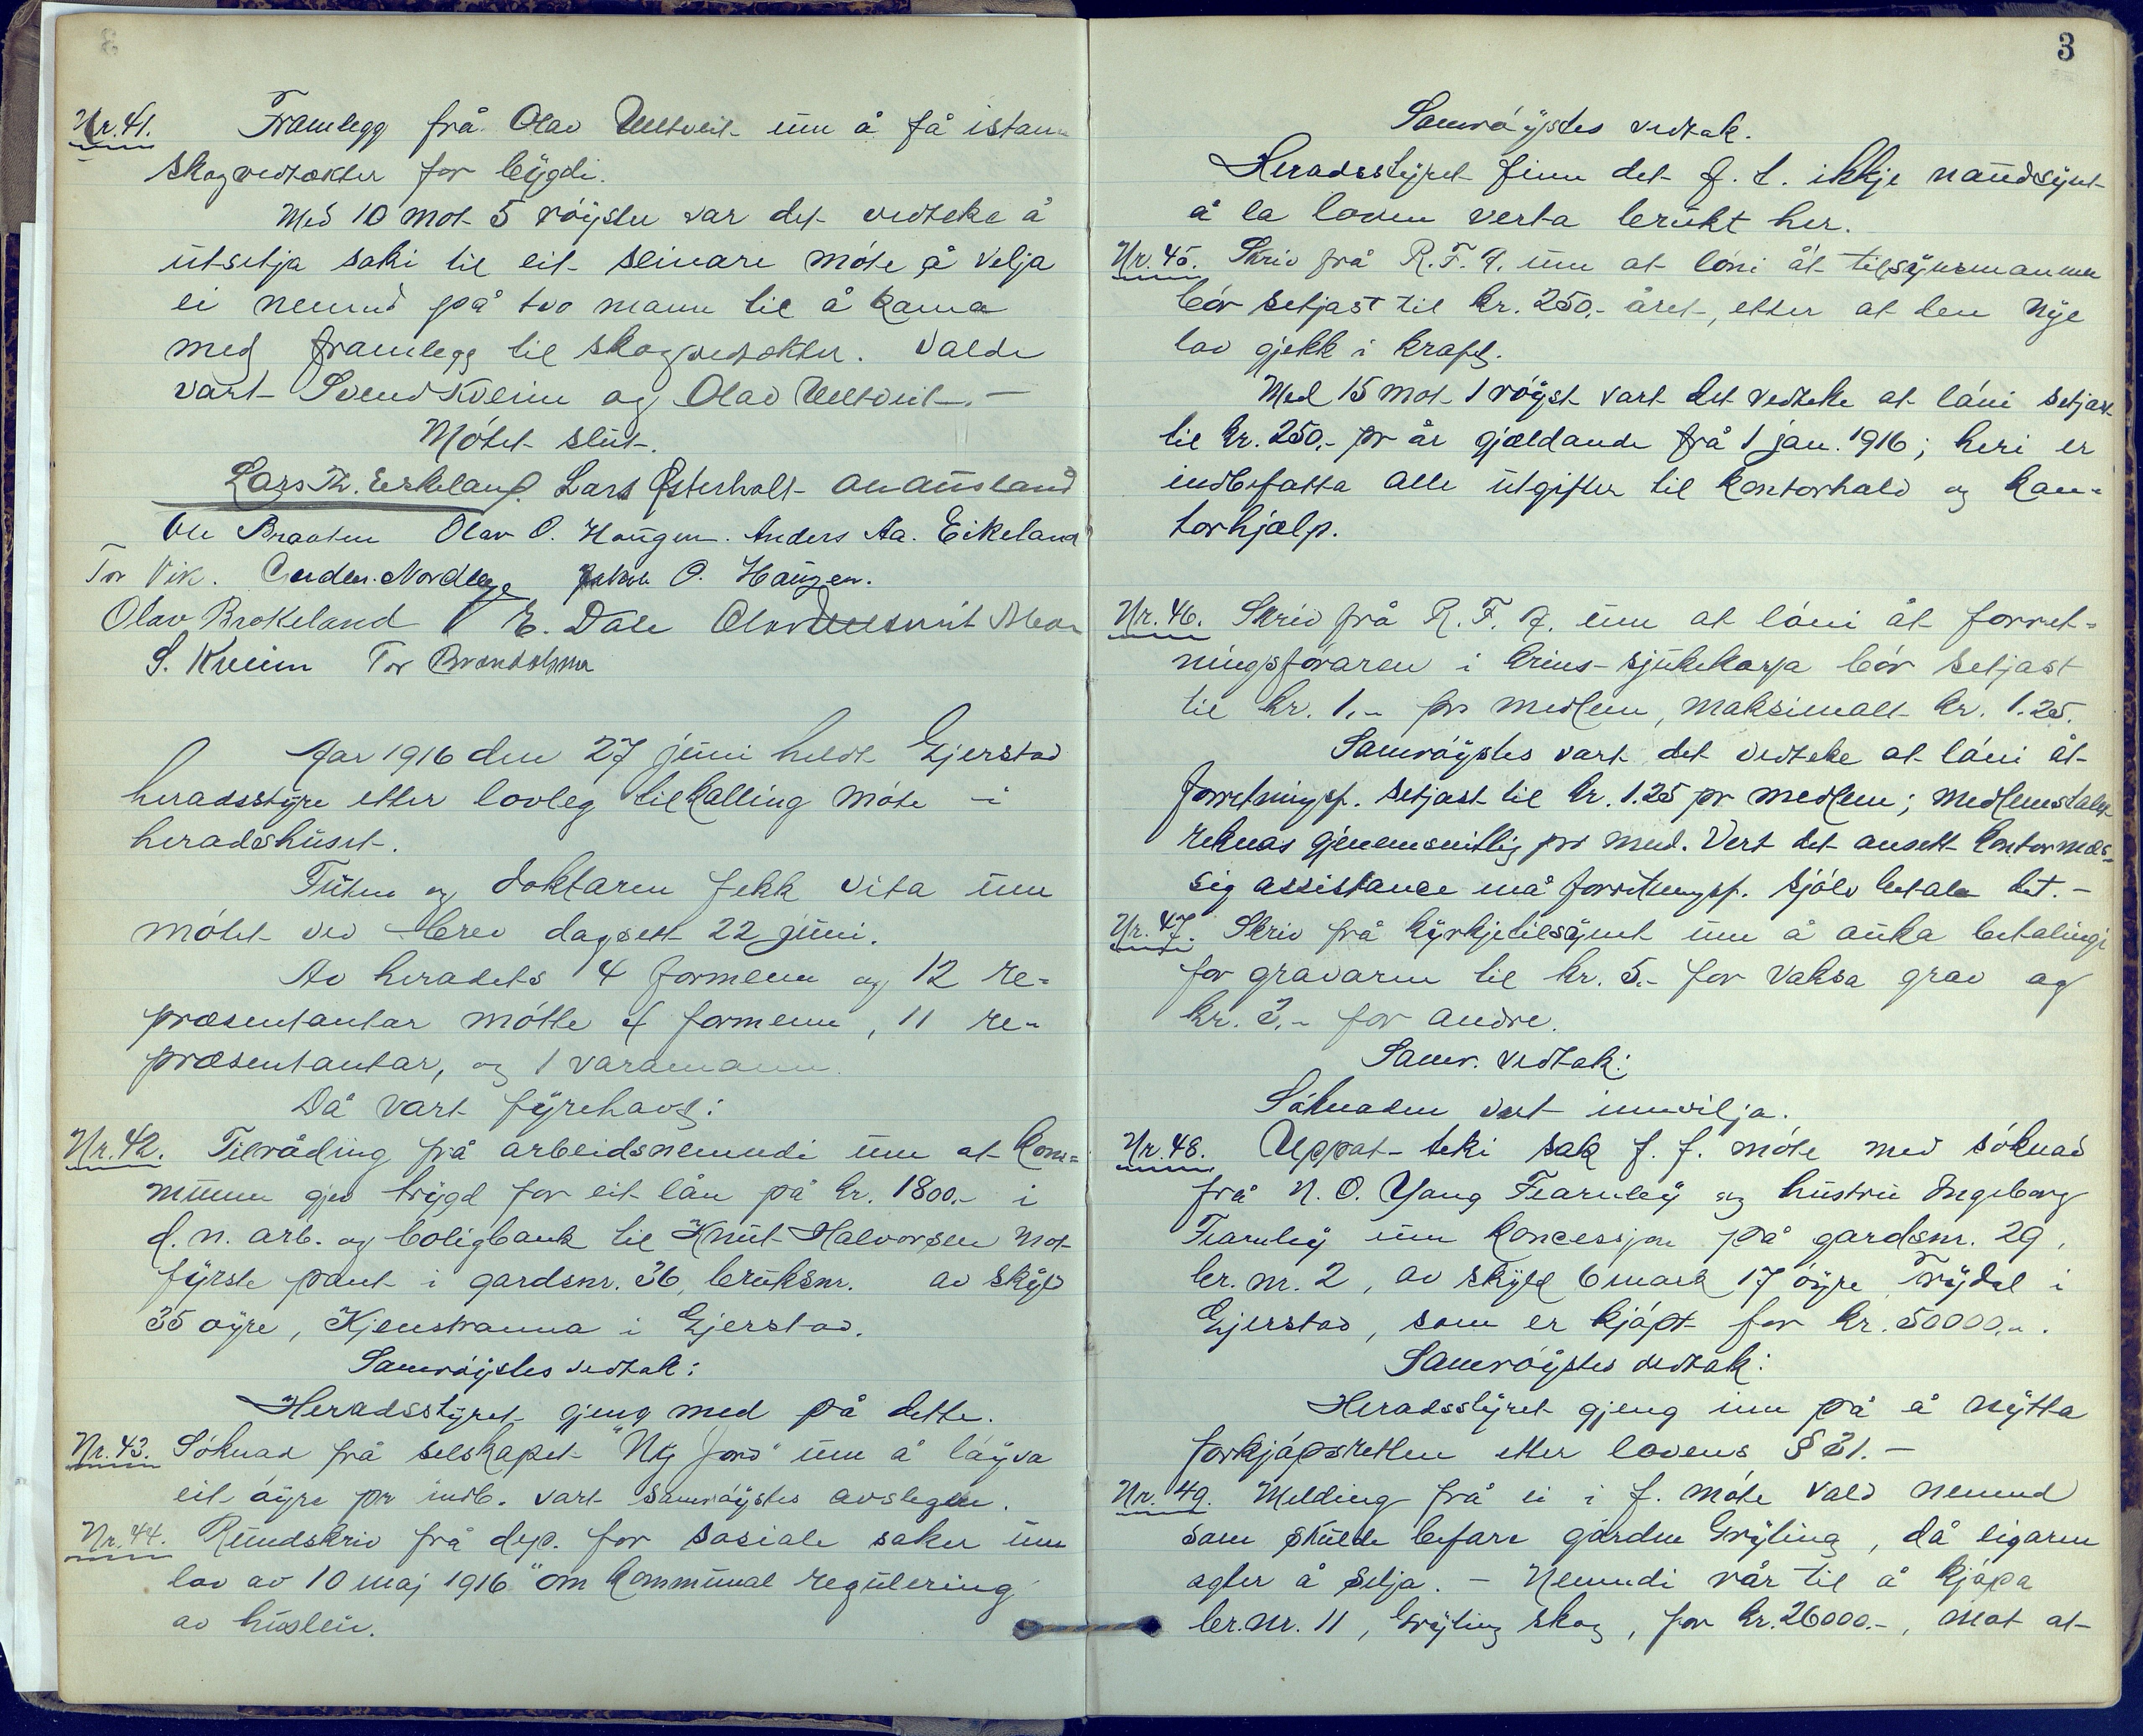 Nr. 41. Framlegg frå Olav Ulltveit um å få istann
skogvedtækter for bygdi.
Med 10 mot 5 röyster var det vedteke å
utsetja saki til eit seinare möte å velja
ei nemnd på tvo mann til å koma
med framlegg til skogvedtækter. Valde
vart Svend Kveim og Olav Ulltveit. —
Mötet slut.
Lars Th. Eskeland. Lars Østerholt
Ole Braaten Olav O. Haugen. Anders Aa. Eikeland
Tor Vik. Jakob O. Haugen.
Olav Brokeland E. Dale Olav Ulltveit
S. Kveim Tor Brandsholmen
Aar 1916 den 27 juni heldt Gjerstad
heradsstyre etter lovleg tilkalling möte i
heradshuset.
Futen og doktaren fekk vita um
mötet ved brev dagsett 22 juni.
Av heradets 4 formenn og 12 re-
præsentantar mötte 4 formenn, 11 re-
præsentantar, og 1 varamann.
Då vart fyrehavt:
Nr. 42. Tilråding frå arbeidsnemndi um at kom-
munen gjev trygd for eit lån på kr. 1800.- i
d. n. arb. og boligbank til Knut Halvorsen mot
fyrste pant i gardsnr. 36, bruksnr. av skyld
35 øyre, Kjenstranna i Gjerstad.
Samröystes vedtak:
Heradsstyret gjeng med på dette.
Nr. 43. Söknad frå selskapet "Ny jord" um å löyva
eit öyre pr indb. vart samröystes avslegen.
Nr. 44. Rundskriv frå dep. for sosiale saker um
lov av 10 maj 1916 "om kommunal regulering
av husleie.
3
Samröystes vedtak.
Heradsstyret finn det f. t. ikkje naudsynt
å la loven verta brukt her.
Nr. 45. Skriv frå R. F. A. um at löni åt tilsynsmannen
bör setjast til kr. 250.- året, etter at den nye
lov gjekk i kraft.
Med 15 mot 1 röyst vart det vedteke at löni setjast
til kr. 250.- pr år gjældande frå 1 jan. 1916; heri er
indbefatta alle utgifter til kontorhald og kon-
torhjælp.
Nr. 46. Skriv frå R. F. A. um at löni åt forret-
ningsföraren i krins-sjukekassa bör setjast
til kr. 1.- pr medlem, maksimalt kr. 1.25.
Samröystes vart det vedteke at löni åt
forretningsf. setjast til kr. 1.25 pr medlem; medlemstalet
reknas gjenemsnitlig pr mnd. Vert det ansett kontormæs-
sig assistance må forretningsf. sjölv betale det. —
Nr. 47. Skriv frå kyrkjetilsynet um å auka betalingi
for gravaren til kr. 5.- for vaksa grav og
kr. 3.- for andre.
Samr. vedtak:
Söknaden vart innvilja.
Nr. 48. Uppat-teki sak f. f. möte med söknad
frå N. O. Yang Fearnley og hustru Ingeborg
Fearnley um koncessjon på gardsnr. 29,
br. nr. 2, av skyld 6 mark 17 öyre, Trydal i
Gjerstad, som er kjöpt for kr. 50000.-.
Samröystes vedtak:
Heradsstyret gjeng inn på å nytta
forkjöpsretten etter lovens § 31. —
Nr. 49. Melding frå ei i f. möte vald nemnd
som skulde befare garden Gryting, då eigaren
agter å selja. — Nemndi rår til å kjöpa
br. nr. 11, Gryting skog, for kr. 26000.-, mot at